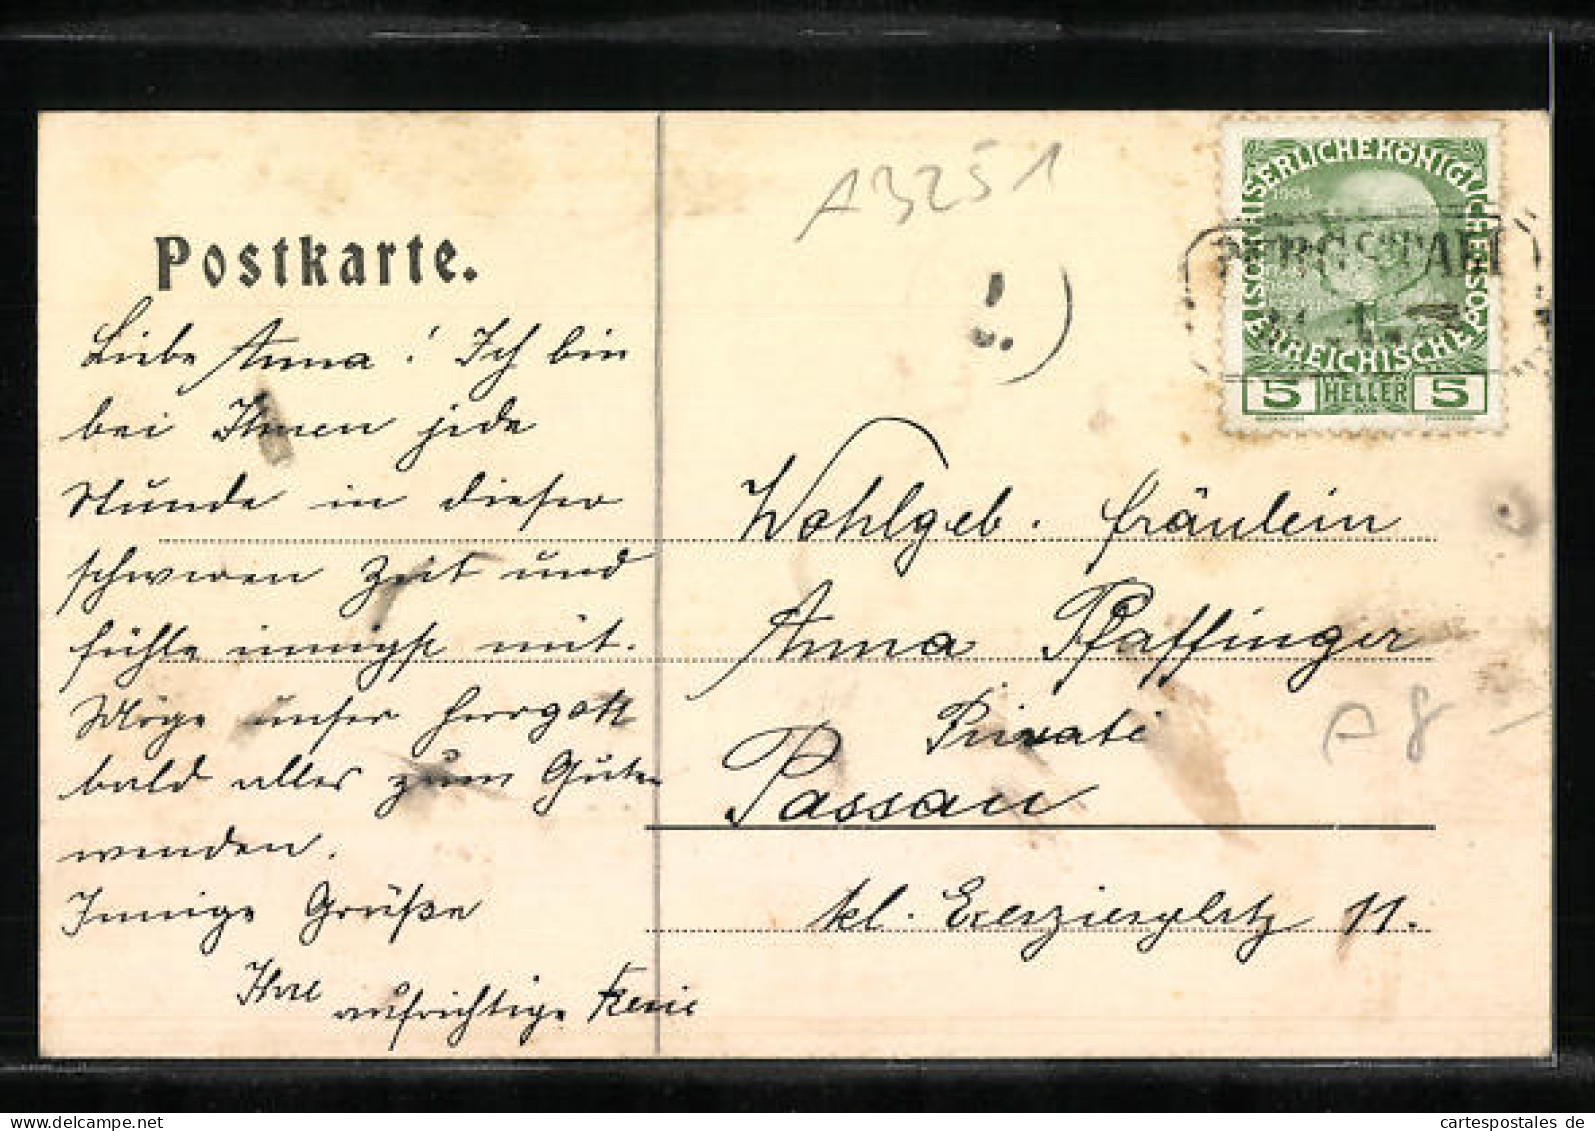 Postkarte.
Liebe Anna! Ich bin
bei Ihnen jede
Stunde in dieser
schweren Zeit und
fühle innigst mit.
Möge unser Herrgott
bald alles zum Guten
wenden.
Innige Grüße
Ihre aufrichtige
A3251
KAISERLICHE KÖNIGLICHE ÖSTERREICHISCHE POST
1908
5 HELLER 5
Wohlgeb. Fräulein
Anna Pfaffinger
Private
Passau
kl. Exerzierplatz 11.
A8
www.delcampe.net
cartespostales de